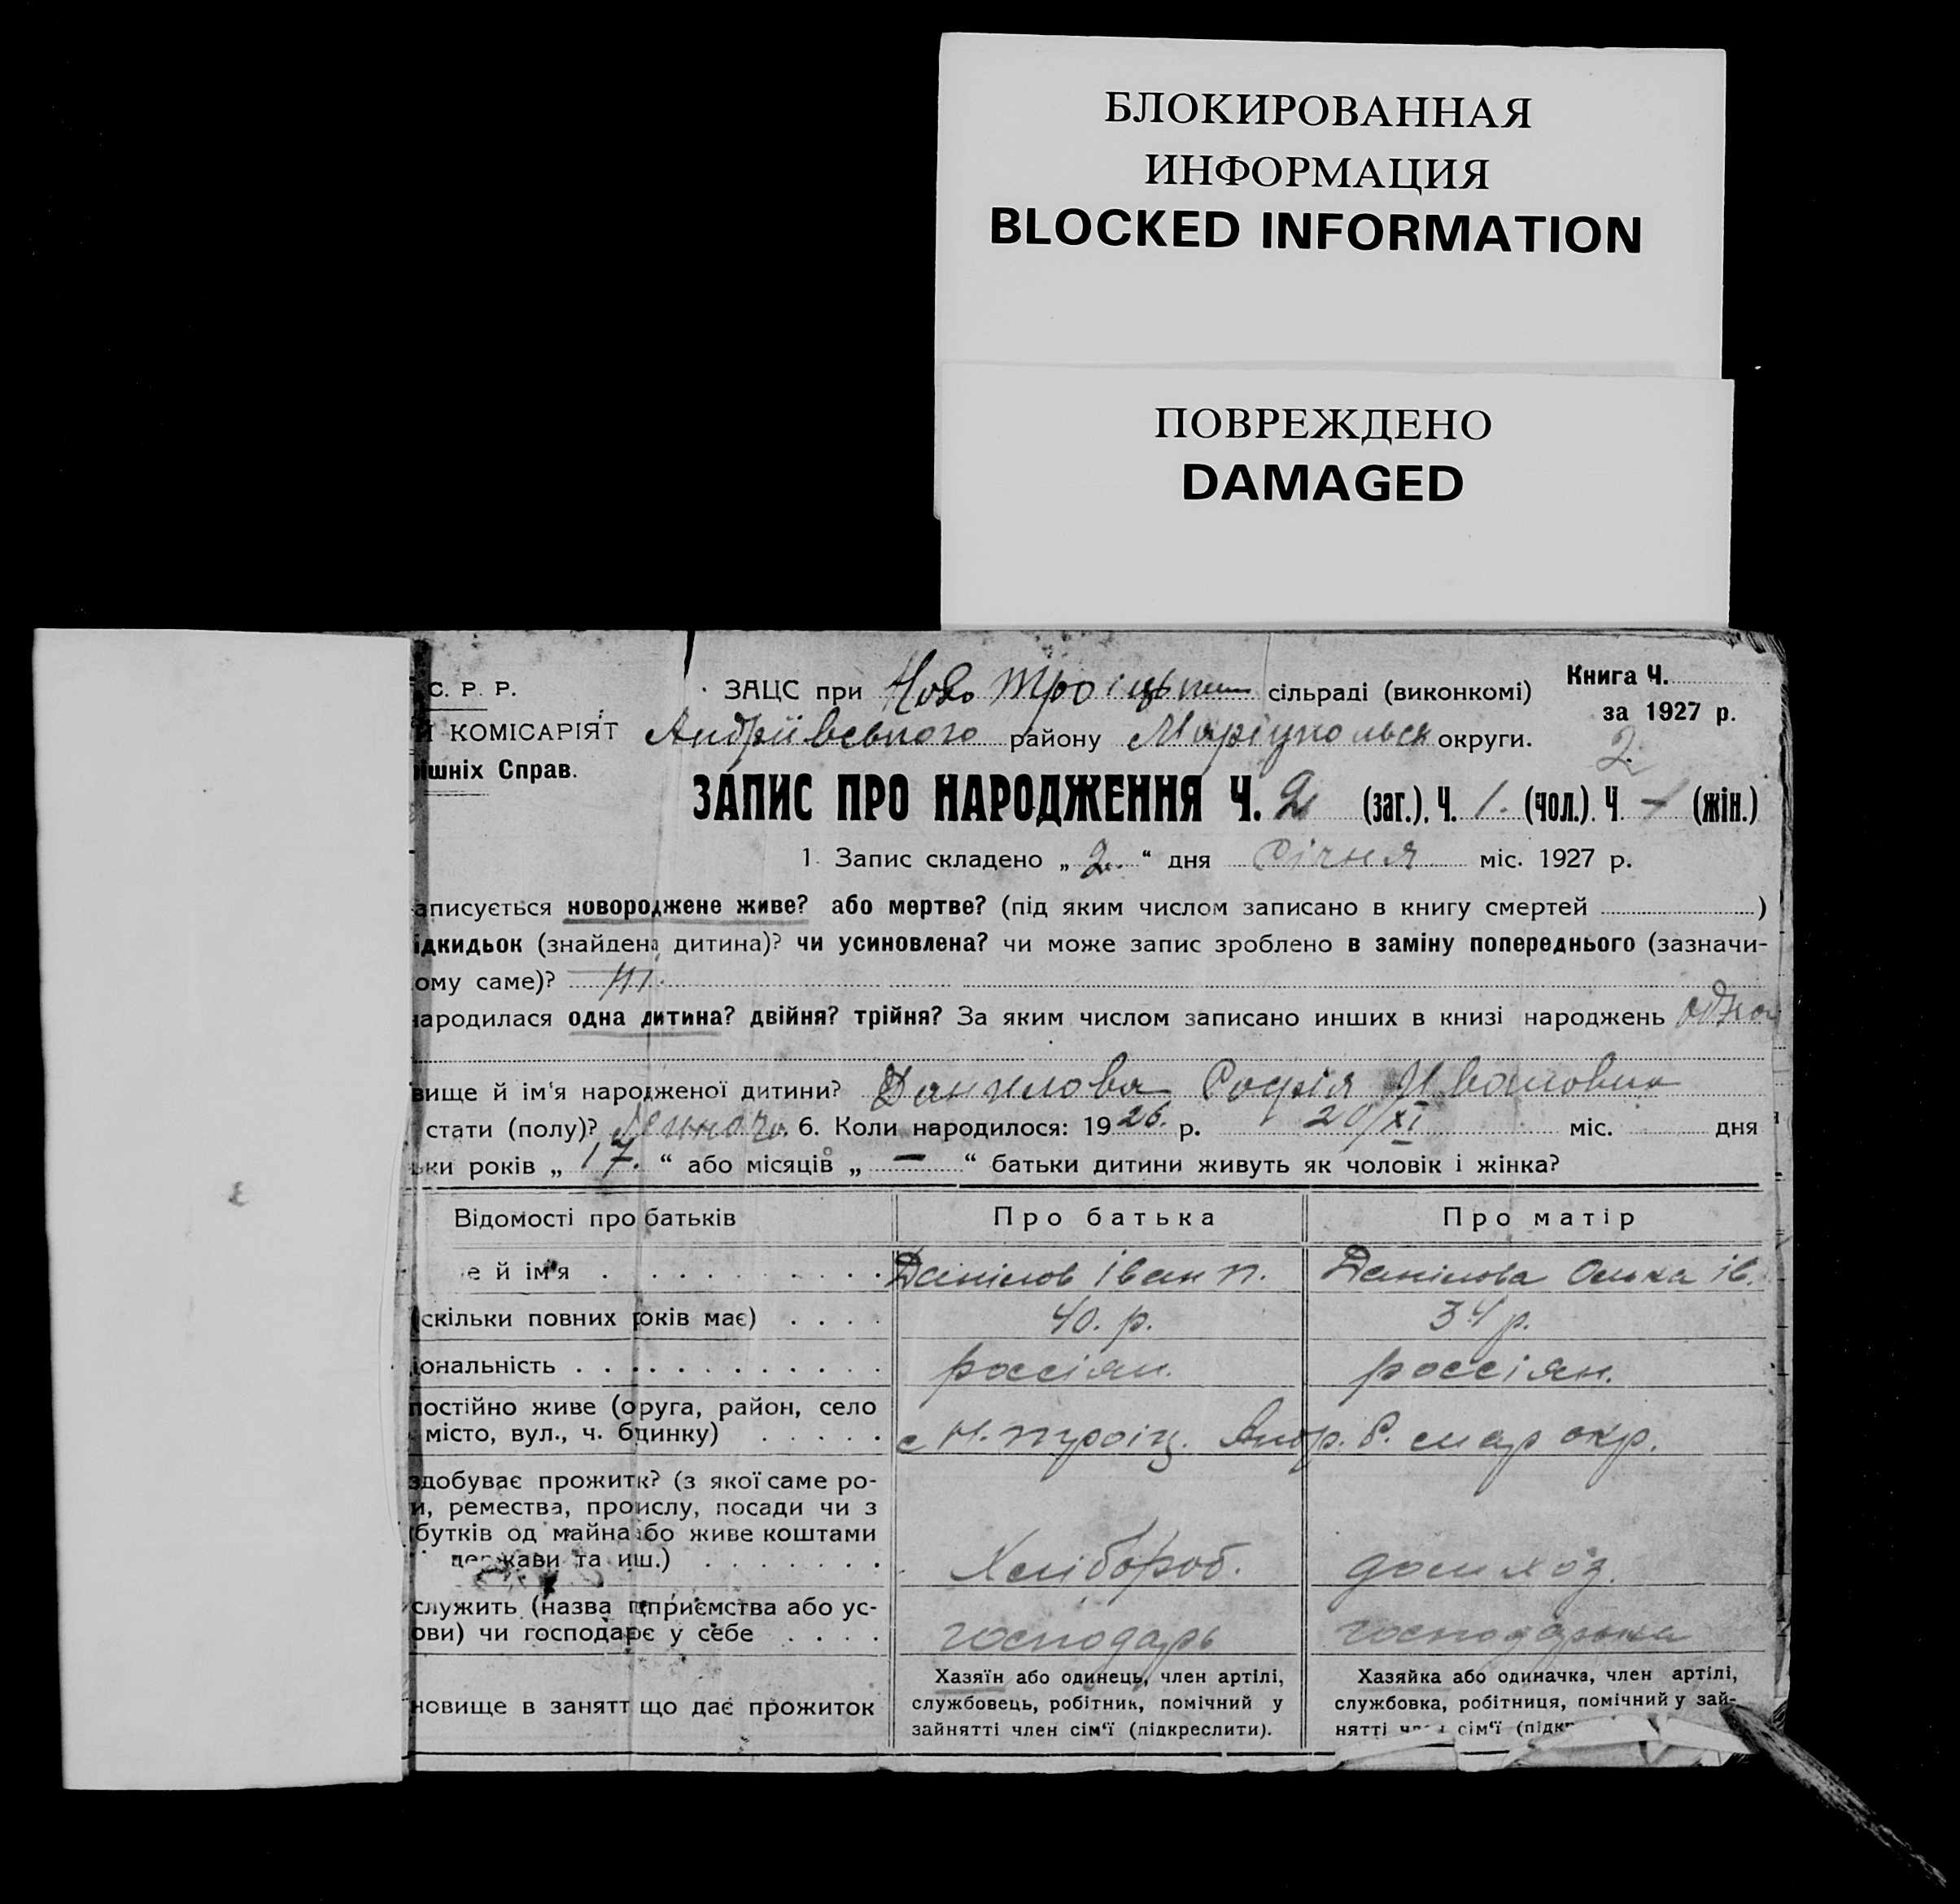 БЛОКИРОВАННАЯ
ИНФОРМАЦИЯ
BLOCKED INFORMATION
ПОВРЕЖДЕНО
DAMAGED
С. Р. Р. ЗАЦС при Ново Троіцькій сільраді (виконкомі) Книга Ч.
за 1927 р.
Й КОМІСАРІЯТ Андріївського району Маріупольськ округи.
ішніх Справ. 2.
ЗАПИС ПРО НАРОДЖЕННЯ Ч. 2 (заг.). Ч. 1. (чол.). Ч. – (жін.)
1. Запис складено „ 2. “ дня Січня міс. 1927 р.
аписується новороджене живе? або мертве? (під яким числом записано в книгу смертей )
ідкидьок (знайдена дитина)? чи усиновлена? чи може запис зроблено в заміну попереднього (зазначи-
ому саме)? ні.
народилася одна дитина? двійня? трійня? За яким числом записано инших в книзі народжень одна
вище й ім'я народженої дитини? Данилова Софія Ивановна
стати (полу)? 6. Коли народилося: 1926. р. 20/XI міс. дня
ьки років „ 17. “ або місяців „ — “ батьки дитини живуть як чоловік і жінка?
Відомості про батьків Про батька Про матір
е й ім'я Данілов Іван п. Данілова Олька Ів.
(скільки повних років має) 40. р. 34 р.
іональність россіян. россіян.
постійно живе (округа, район, село
місто, вул., ч. будинку) с Н. троіц. Андр. р. мар окр.
здобуває прожиток? (з якої саме ро-
и, ремества, промислу, посади чи з
бутків од майна або живе коштами
держави та инш.) Хлібороб. дом хоз.
служить (назва підприємства або ус-
ови) чи господарє у себе господарь господарька
новище в занятті що дає прожиток
Хазяїн або одинець, член артілі,
службовець, робітник, помічний у
зайнятті член сім'ї (підкреслити).
Хазяйка або одиначка, член артілі,
службовка, робітниця, помічний у зай-
нятті член сім'ї (підк